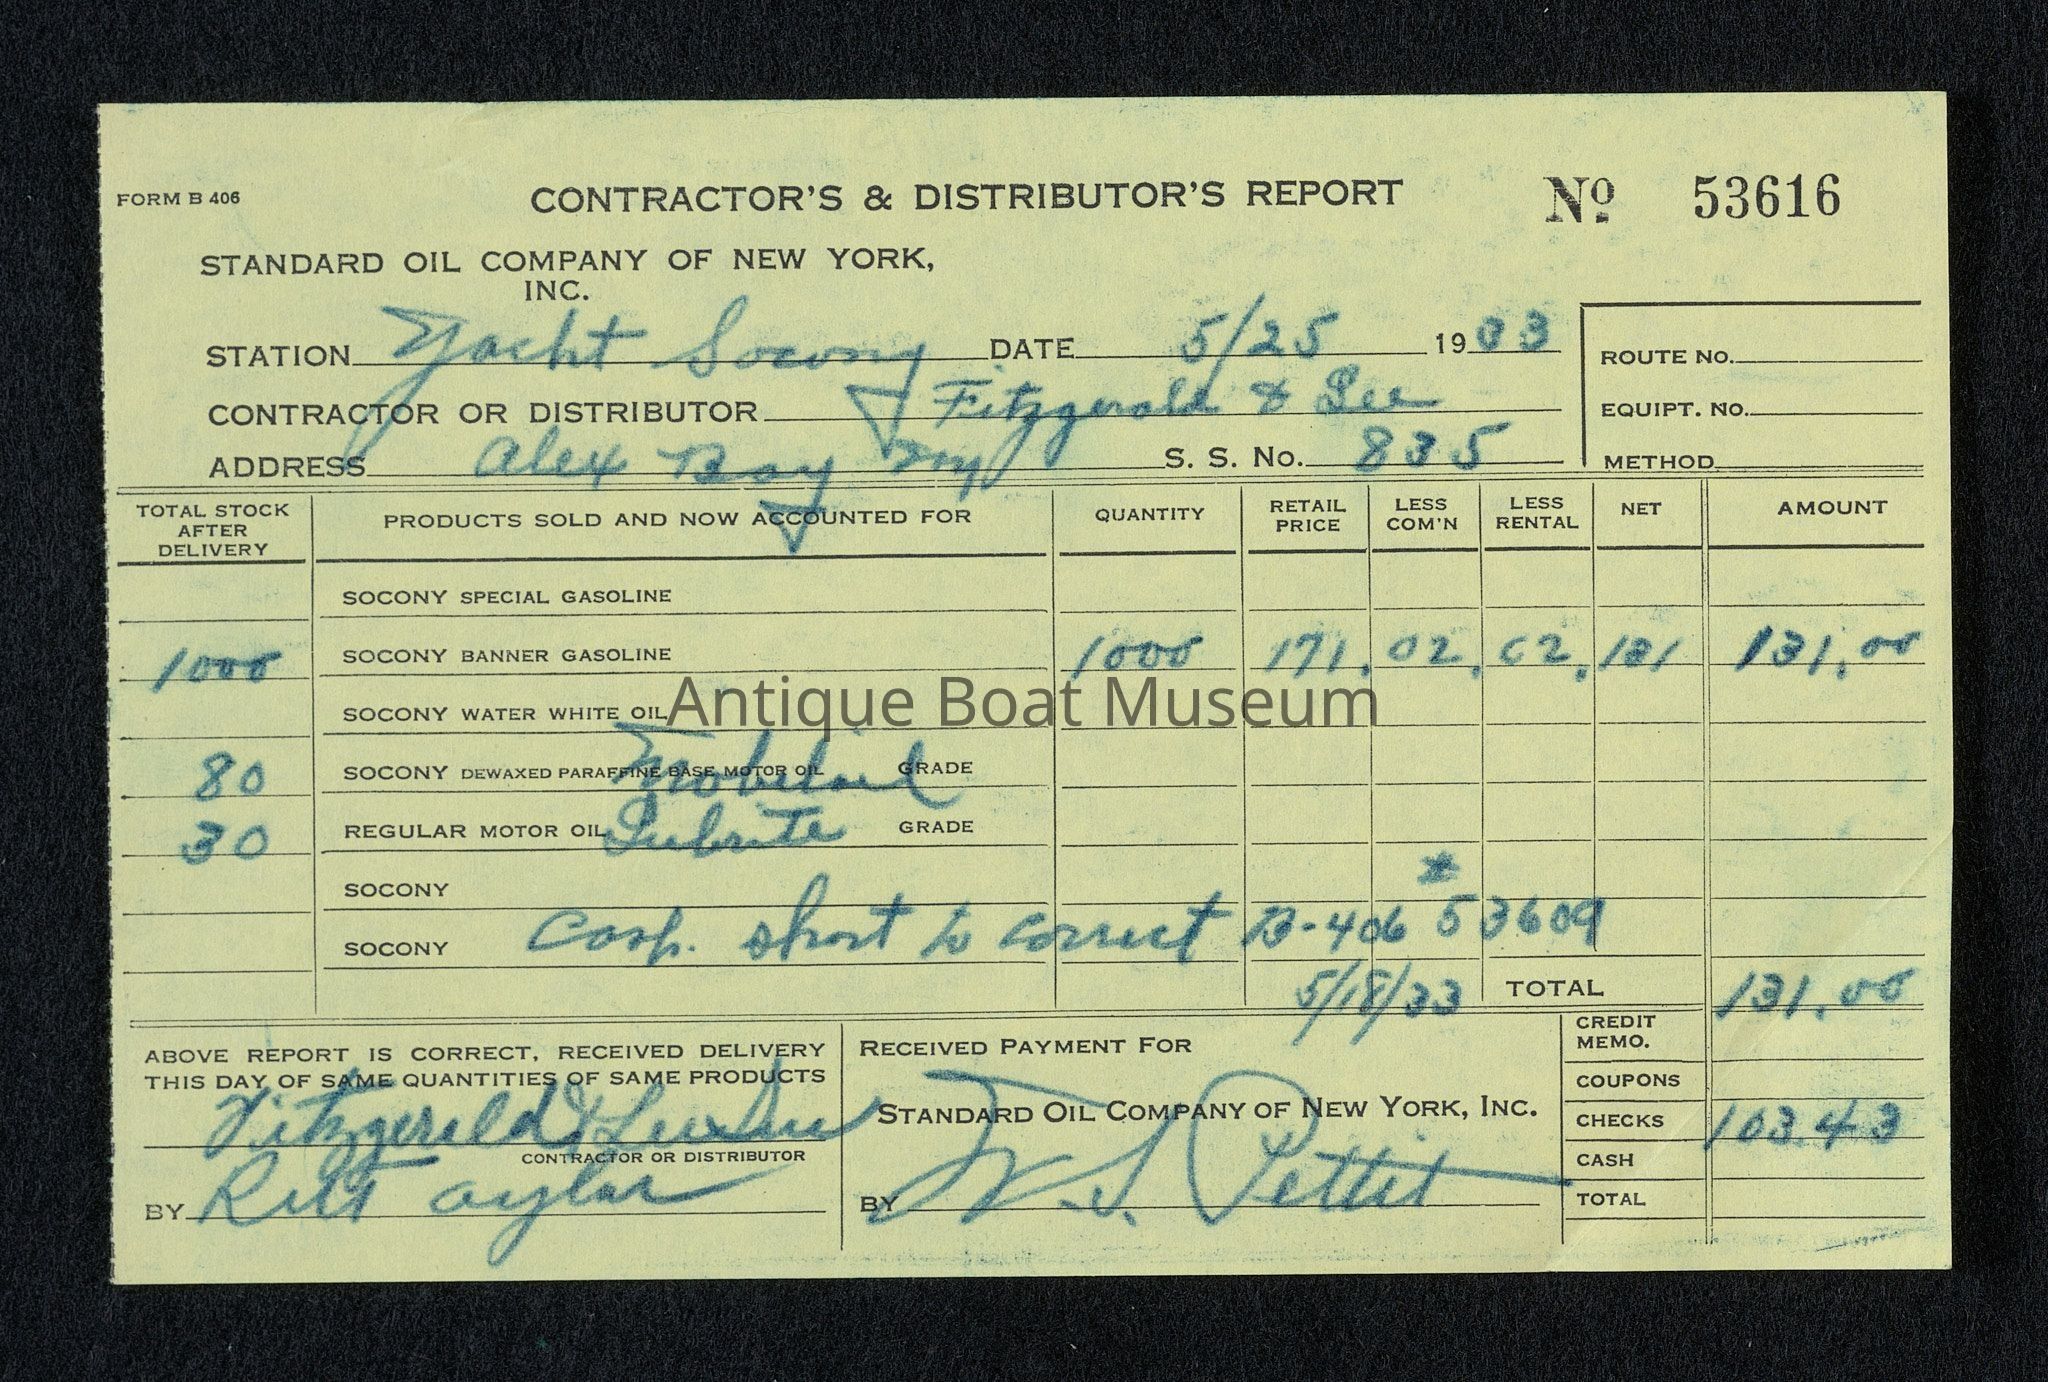 FORM B 406
CONTRACTOR'S & DISTRIBUTOR'S REPORT
No. 53616
STANDARD OIL COMPANY OF NEW YORK,
INC.
STATION Yacht Socony DATE 5/25 1933
CONTRACTOR OR DISTRIBUTOR Fitzgerald & Lee
ADDRESS Alex Bay NY S. S. No. 835
ROUTE NO.
EQUIPT. NO.
METHOD
TOTAL STOCK AFTER DELIVERY PRODUCTS SOLD AND NOW ACCOUNTED FOR QUANTITY RETAIL PRICE LESS COM'N LESS RENTAL NET AMOUNT
SOCONY SPECIAL GASOLINE
1000 SOCONY BANNER GASOLINE 1000 171. 02. 02. 131 131.00
SOCONY WATER WHITE OIL
Antique Boat Museum
80 SOCONY DEWAXED PARAFFINE BASE MOTOR OIL Mobiloil GRADE
30 REGULAR MOTOR OIL Lubrite GRADE
SOCONY
SOCONY Cash short to correct B-406 # 53609
5/18/33 TOTAL 131.00
ABOVE REPORT IS CORRECT, RECEIVED DELIVERY
THIS DAY OF SAME QUANTITIES OF SAME PRODUCTS
Fitzgerald &
CONTRACTOR OR DISTRIBUTOR
BY Taylor
RECEIVED PAYMENT FOR
STANDARD OIL COMPANY OF NEW YORK, INC.
BY Pettit
CREDIT MEMO.
COUPONS
CHECKS 103.43
CASH
TOTAL